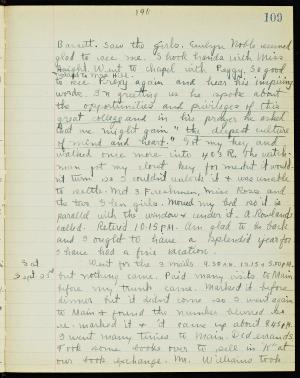 196
109
Barrett. Saw the girls. Evelyn Noble seemed
glad to see me. Shook hands with Miss
Knight. Went to chapel with Peggy. So good
to see Prexy again and hear his inspiring
words. In greeting us he spoke about
the opportunities and privileges of this
great college and in his prayer he asked
that we might gain "the deepest culture
of mind and heart." Got my key and
walked once more into 403 R. The watch-
man got my closet key for me but it would
n't turn so I couldn't unlock it & was unable
to settle. Met 3 Freshmen, Miss Rose and
the two Allen girls. Moved my bed so it is
parallel with the window & under it. A Rowland
called. Retired 10.15 P.M. Am glad to be back
and I ought to have a splendid year for
I have had a fine vacation.
Sat Went for the 3 mails, 9.30 A.M. 12.15 & 5.00 P.M.
Sept 23rd but nothing came. Paid many visits to Main
before my trunk came. Marked it before
dinner but it didn't come so I went again
to Main & found the number blurred so
re-marked it & it came up about 8.45 P.M.
I went many times to Main. Did errands.
Took some books over to sell in "K" at
our book exchange. Mr. Williams took